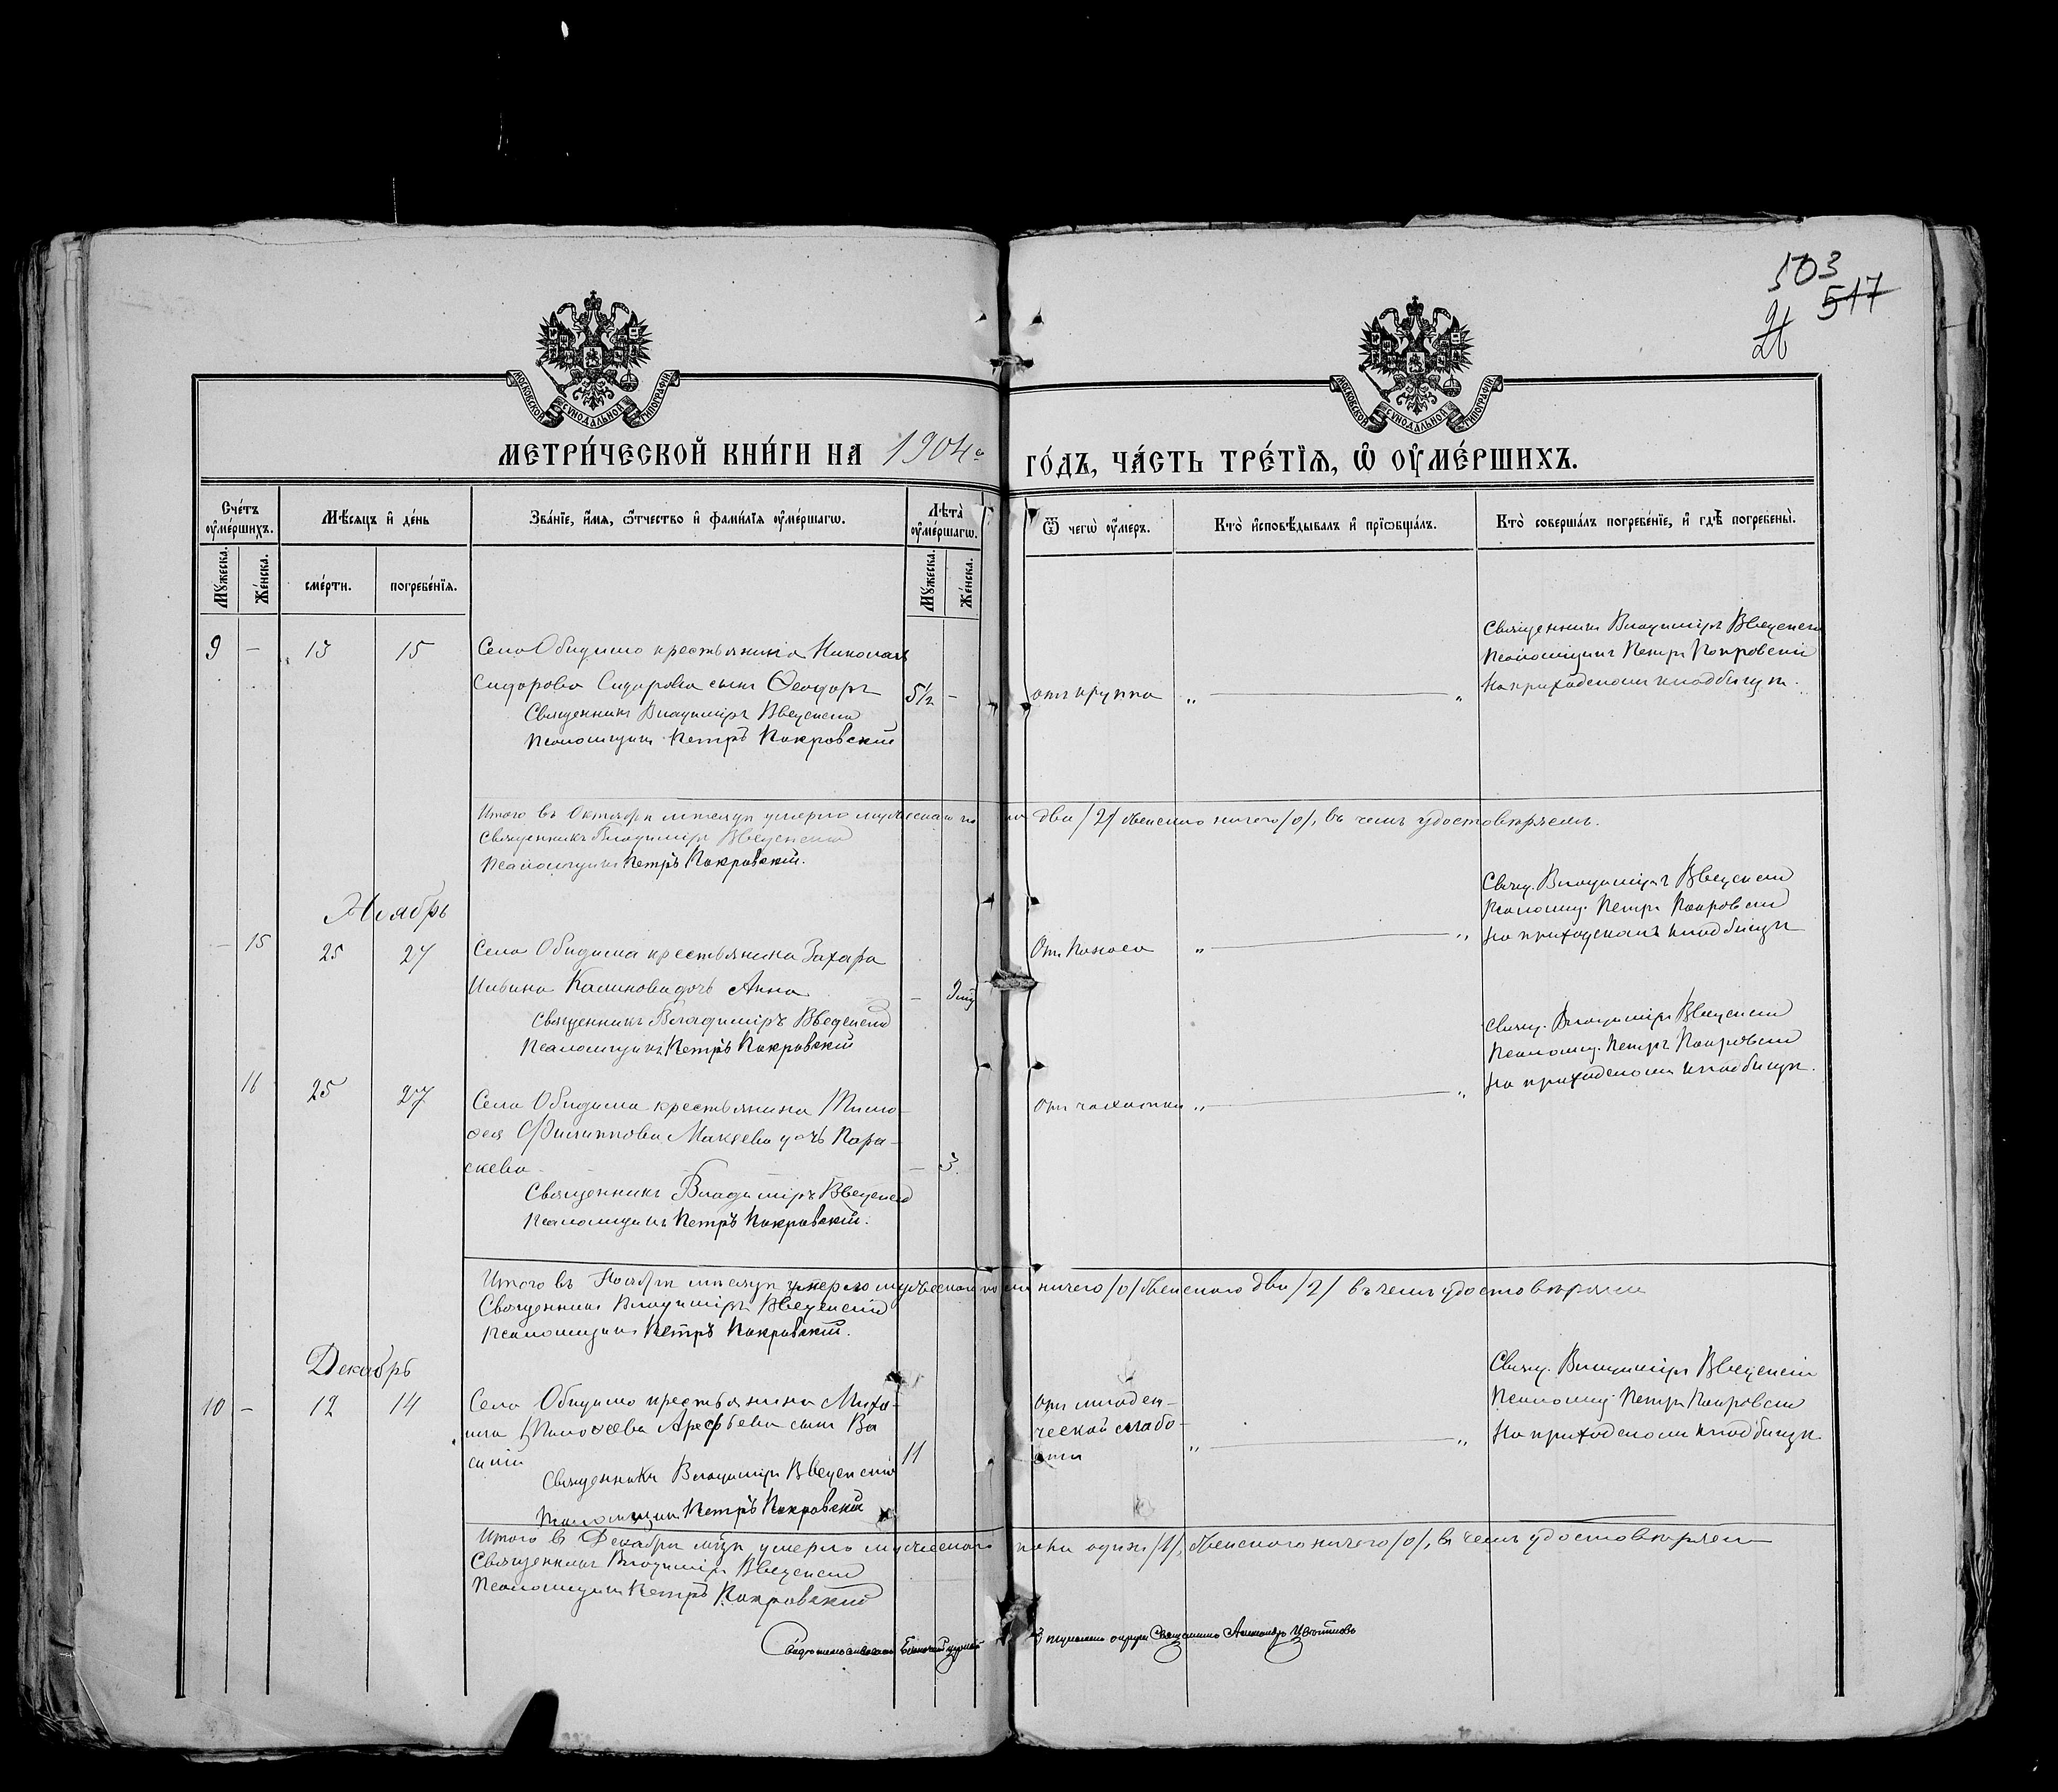 503
517
26
МОСКОВСКОЙ СѴНОДАЛЬНОЙ ТИПОГРАФІИ
МОСКОВСКОЙ СѴНОДАЛЬНОЙ ТИПОГРАФІИ
МЕТРИ́ЧЕСКОЙ КНИ́ГИ НА 1904й ГО́ДЪ, ЧА́СТЬ ТРЕ́ТЇѦ, Ѡ҆ ОУ҆МЕ́РШИХЪ.
Сче́тъ оу҆ме́ршихъ.
Мѣ́сяцъ и҆ де́нь
Зва́нїе, и҆́мя, ѻ҆́тчество и҆ фами́лїя оу҆ме́ршагѡ.
Лѣта̀ оу҆ме́ршагѡ.
Ѿ чегѡ̀ оу҆́меръ.
Кто̀ и҆сповѣ́дывалъ и҆ прїѡбща́лъ.
Кто̀ соверша́лъ погребе́нїе, и҆ гдѣ̀ погребены̀.
Мꙋ́жеска.
Же́нска.
сме́рти.
погребе́нїя.
Мꙋ́жеска.
Же́нска.
9 - 13 15 Села Обидимо крестьянина Николая
Сидорова Сидорова сынъ Ѳеодоръ 5½ -
Священникъ Владиміръ Введенскій
Псаломщикъ Петръ Покровскій
отъ крупа „ „
Священникъ Владиміръ Введенскій
Псаломщикъ Петръ Покровскій
На приходскомъ кладбищѣ.
Итого въ Октябрѣ мѣсяцѣ умерло мужескаго пола два /2/ женскаго ничего /0/, въ чемъ удостовѣряемъ.
Священникъ Владиміръ Введенскій
Псаломщикъ Петръ Покровскій.
Ноябрь
- 15 25 27 Села Обидима крестьянина Захара
Ильина Калинова дочь Анна -
Священникъ Владиміръ Введенскій
Псаломщикъ Петръ Покровскій
Отъ поноса „ „
Свящ. Владиміръ Введенскій
Псаломщ. Петръ Покровскій
На приходскомъ кладбищѣ
16 25 27 Села Обидима крестьянина Тимо-
ѳея Филиппова Макѣева дочь Пара-
скева - 3.
Священникъ Владиміръ Введенскій
Псаломщикъ Петръ Покровскій.
Отъ чахотки „ „
Свящ. Владиміръ Введенскій
Псаломщ. Петръ Покровскій
На приходскомъ кладбищѣ.
Итого въ Ноябрѣ мѣсяцѣ умерло мужескаго пола ничего /0/ женскаго два /2/ въ чемъ удостовѣряемъ
Священникъ Владиміръ Введенскій
Псаломщикъ Петръ Покровскій.
Декабрь
10 - 12 14 Села Обидимо крестьянина Миха-
ила Тимоѳеева Арефьева сынъ Ва
силій 11
Священникъ Владиміръ Введенскій
Псаломщикъ Петръ Покровскій
отъ младен-
ческой слабо-
сти „ „
Свящ. Владиміръ Введенскій
Псаломщ. Петръ Покровскій
На приходскомъ кладбищѣ
Итого въ Декабрѣ мѣцѣ умерло мужескаго пола одинъ /1/, женскаго ничего /0/, въ чемъ удостовѣряемъ
Священникъ Владиміръ Введенскій
Псаломщикъ Петръ Покровскій
округа Священникъ Александръ